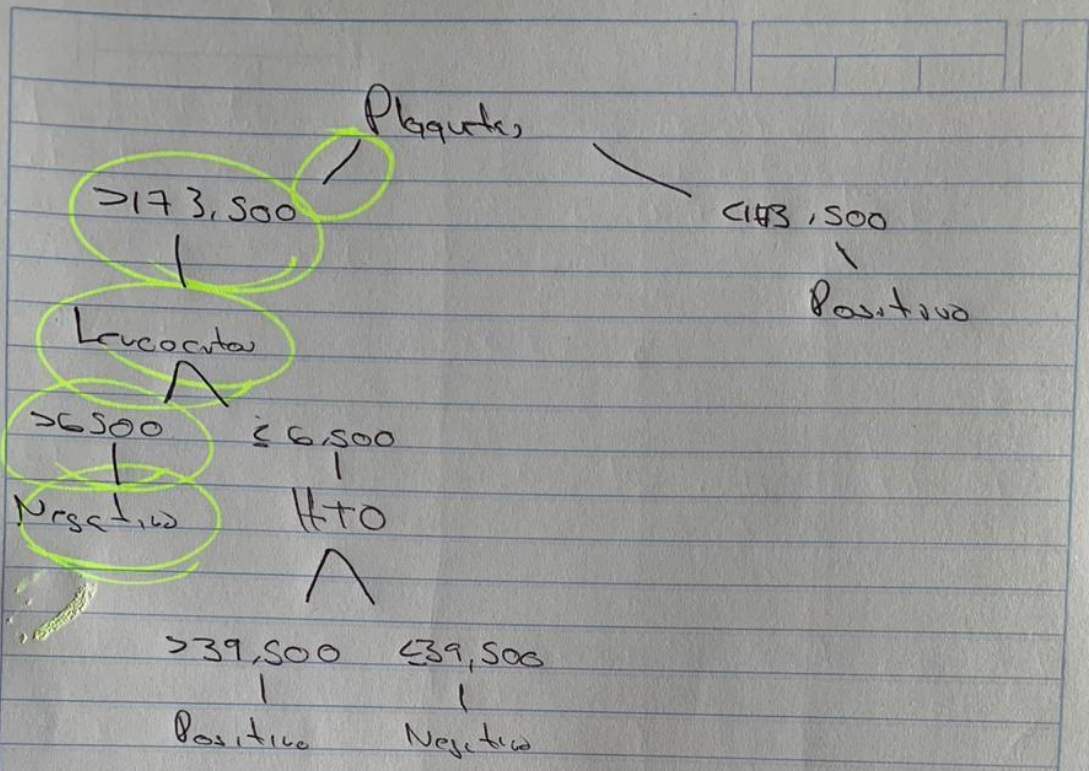 Plaquetas
>173,500 <173,500
Positivo
Leucocitos
>6500 ≤ 6,500
Negativo HTO
>39,500 ≤39,500
Positivo Negativo